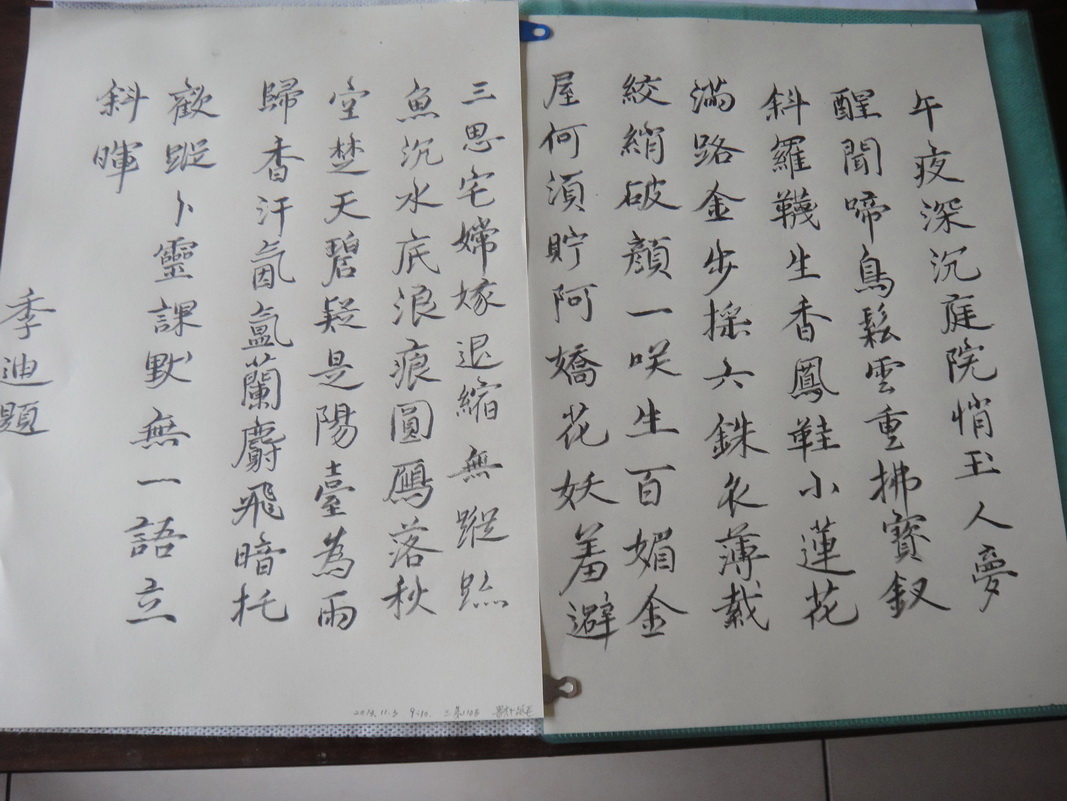 午夜深沉庭院悄玉人夢
醒聞啼鳥鬆雲重拂寶釵
斜羅韈生香鳳鞋小蓮花
滿路金步搖六銖衣薄戴
絞綃破顏一咲生百媚金
屋何須貯阿嬌花妖羞避
三思宅嫦娥退縮無蹤跡
魚沉水底浪痕圓鴈落秋
空楚天碧疑是陽臺為雨
歸香汗氤氳蘭麝飛暗托
歡蹤卜靈課默無一語立
斜暉
季迪題